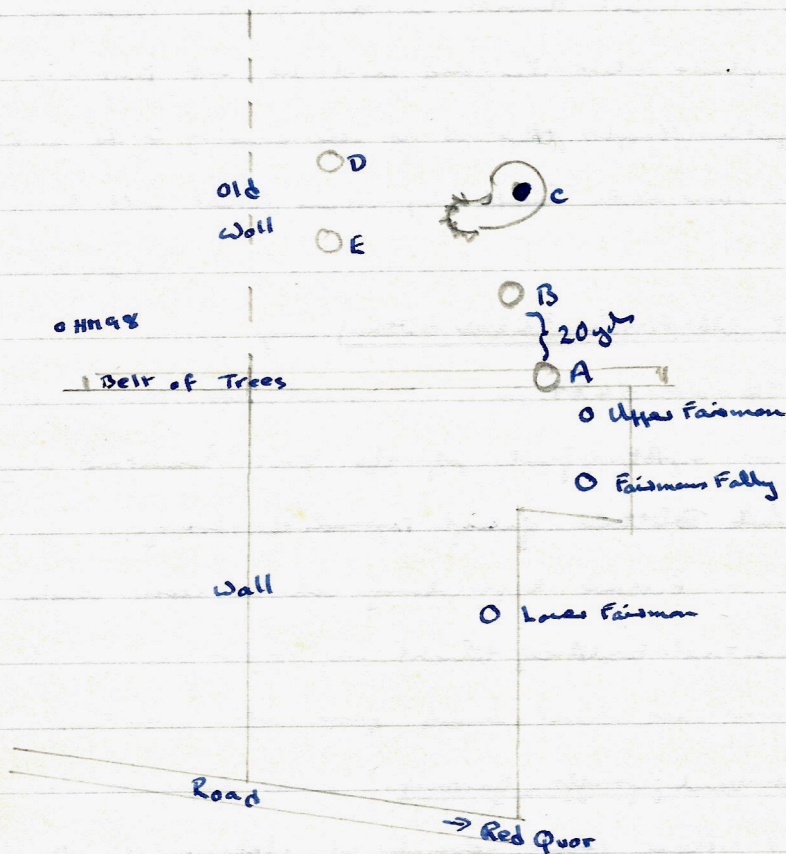 D
Old
C
Wall
E
B
HM98
20 yds
Belt of Trees
A
Upper Fairmans
Fairmans Folly
Wall
Lower Fairman
Road
→ Red Quar